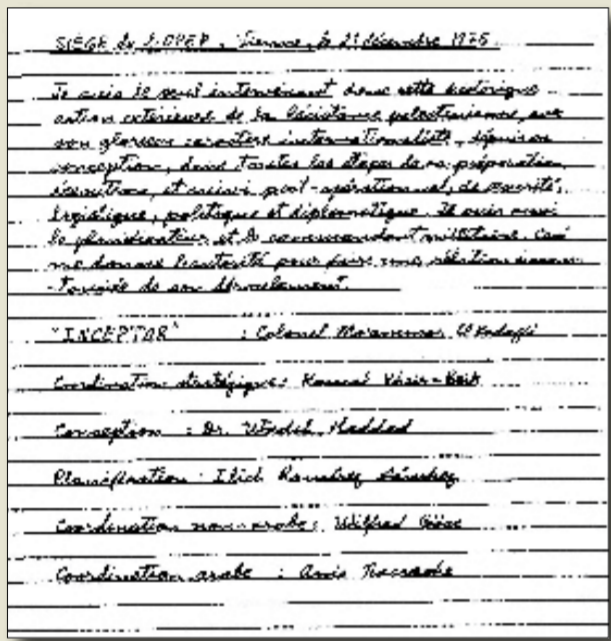 SIÈGE de L'OPEP, Vienne, le 21 décembre 1975
Je suis le seul intervenant dans cette historique
action extérieure de la Résistance palestinienne, avec
son glorieux caractère internationaliste, depuis sa
conception, dans toutes les étapes de sa préparation,
exécution, et suivi post-opérationnel, de sécurité,
logistique, politique et diplomatique. Je suis aussi
le planificateur et le commandant militaire. Ceci
me donne l'autorité pour faire une relation
de son déroulement.
"INCEPTOR" : Colonel Mo'ammar El Kadafi
Coordination stratégique: Kamal Kheir-Beik
Conception : Dr. Wadih Haddad
Planification : Ilich Ramírez Sánchez
Coordination non-arabe: Wilfred Böse
Coordination arabe : Anis Naccache